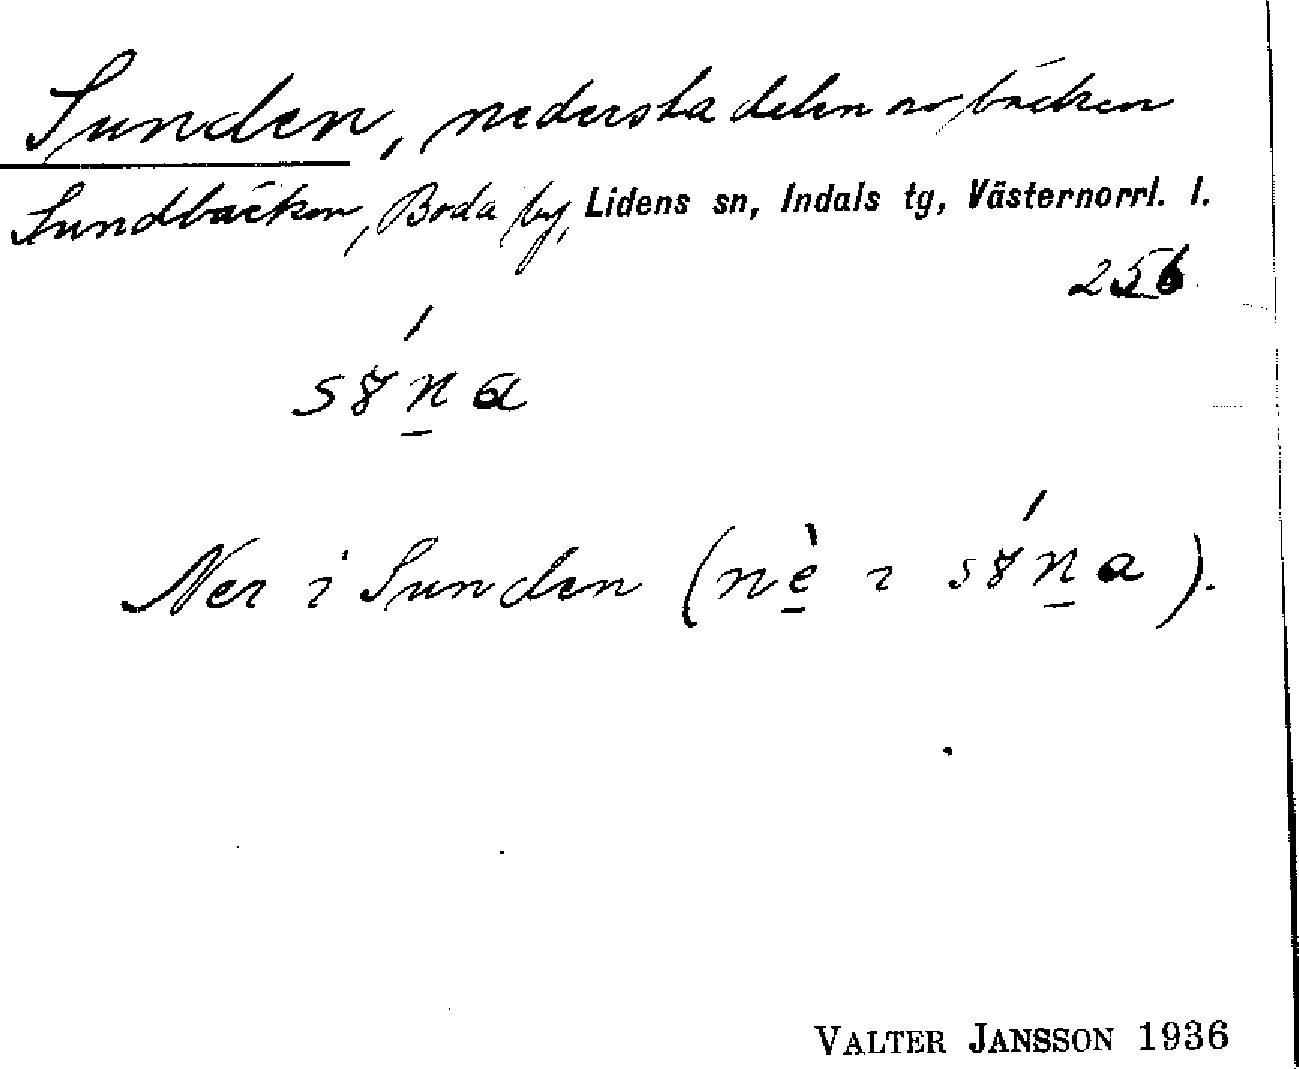 Sunden, nedersta delen av bäcken
Sundbäcken, Boda by, Lidens sn, Indals tg, Västernorrl. l.
256
s8́n̲a
Ner i Sunden (nè̲ ı s8́n̲a).
VALTER JANSSON 1936